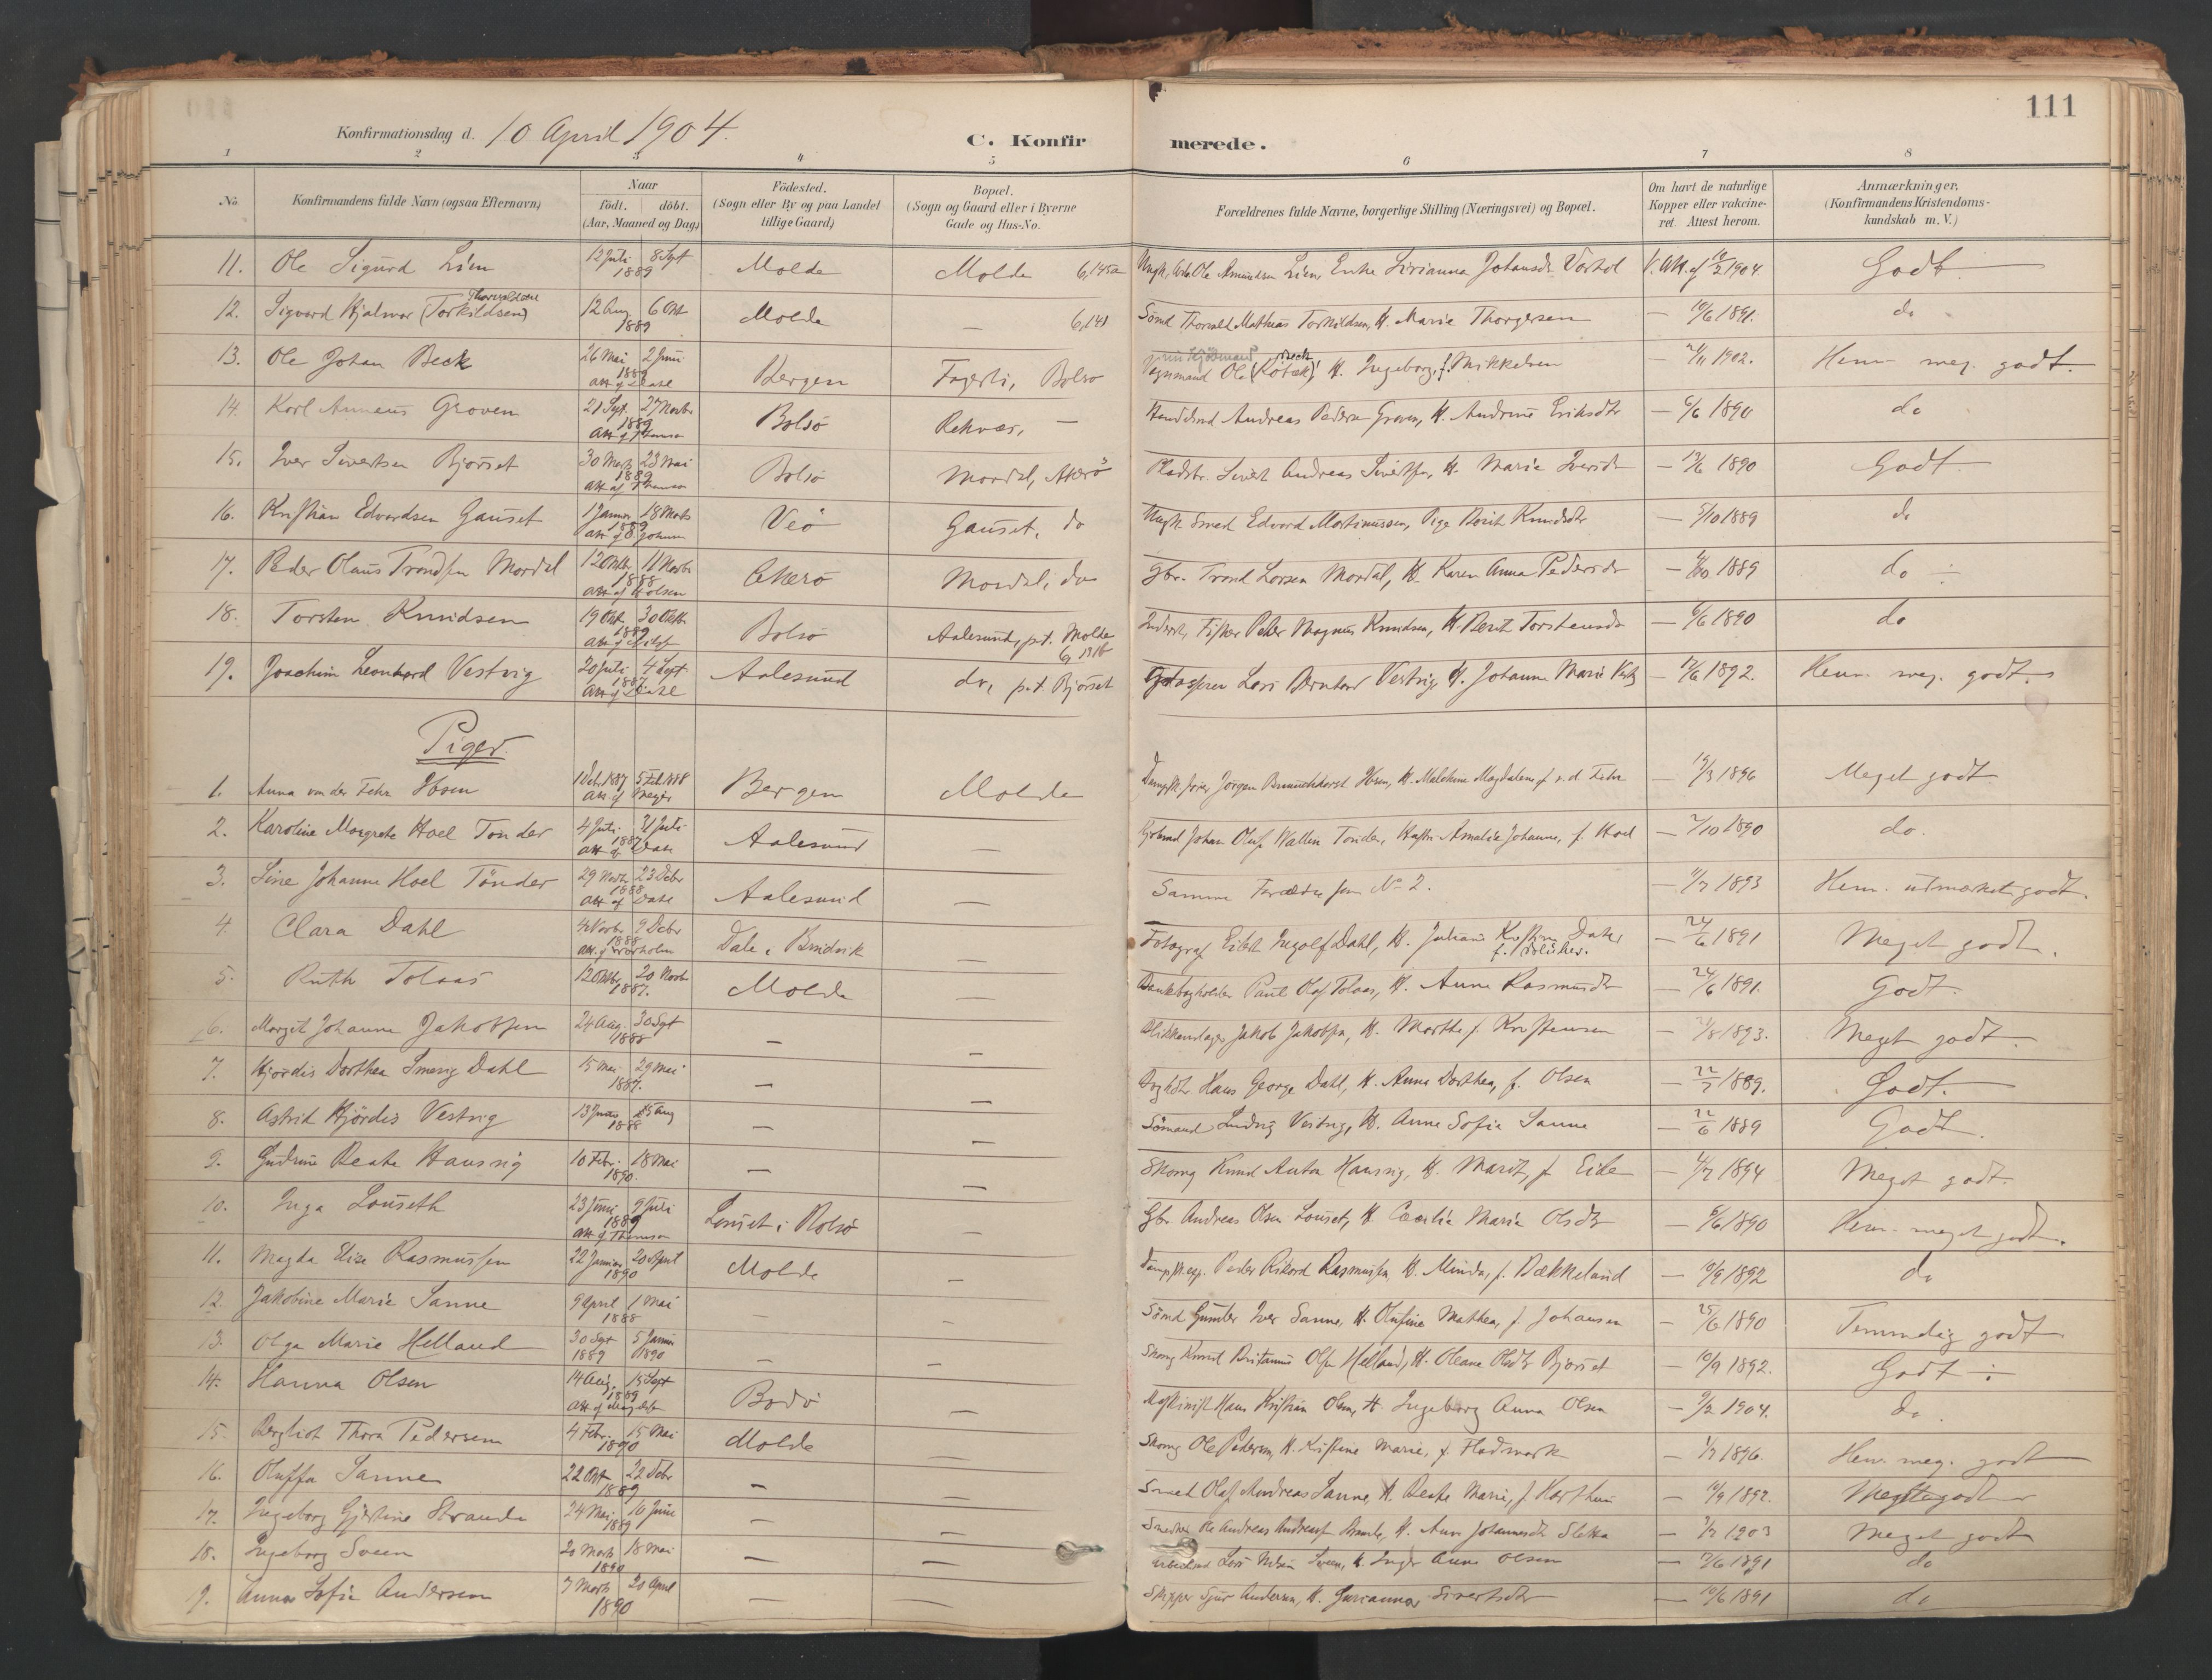 111
Konfirmationsdag d. 10 April 1904.
C. Konfirmerede.
1 2 3 4 5 6 7 8
No. Konfirmandens fulde Navn (ogsaa Efternavn) Naar födt. döbt. (Aar, Maaned og Dag) Födested. (Sogn eller By og paa Landet tillige Gaard) Bopæl. (Sogn og Gaard eller i Byerne Gade og Hus-No. Forældrenes fulde Navne, borgerlige Stilling (Næringsvei) og Bopæl. Om havt de naturlige Kopper eller vakcineret. Attest herom. Anmærkninger. (Konfirmandens Kristendomskundskab m. V.)
11. Ole Sigurd Lien 12 Juli 8 Sept 1889 Molde Molde 6,145a Ole Amundsen Lien, Enke Johansdr V. Att. af 1904. Godt
12. Sigvard Hjalmar (Torkildsen) Thorvaldsen 12 Aug 6 Okt 1889 Molde — 6,141 Sömd Thorvald Mathias Torkildsen, H. Marie Thorgersen — 10/6 1891. do
13. Ole Johan Beck 26 Mai 2 Juni 1889 Att. af Bergen Bolsö Ole Beck H. Ingeborg, f. Mikkelsen — 1902. Henm. meg. godt.
14. Karl Anneus Groven 21 Sept. 27 Novbr 1889 Bolsö Reknæs, — Andreas Pedersen Groven, H. Andrine Eriksdtr — 6/6 1890 do
15. Iver Sivertsen Bjorset 30 Marts 23 Mai 1889 Bolsö Mordal, Akerö Pladsbr. Sivert Andreas Sivertsen, H. Marie Iversdr — 1890 Godt
16. Kristian Edvardsen Gauset 1 Januar 18 Marts 1889 Veö Gauset, do Smed Edvard Martinussen, Pige Berit Knudsdtr — 5/10 1889 do
17. Peder Olaus Trondsen Mordal 12 Oktbr 11 Novbr 1888 Att. af Holsen Akerö Mordal, do Gbr. Trond Larsen Mordal, H. Karen Anna Pedersdr — 1889 do
18. Torsten Knudsen 19 Okt. 30 Oktbr 1889 Bolsö Aalesund, p.t. Molde Inderst, Fisker Peder Magnus Knudsen, H. Berit Torstensdr — 6/6 1890 do
19. Joachim Leonhard Vestvig 20 Juli 4 Sept 1887 Aalesund do, p.t. Bjorset Lars Bernhard Vestvig, H. Johanne Marie — 1892. Henm. meg. godt.
Piger.
1. Anna von der Fehr Ibsen 1 Oct. 1887 5 Feb 1888 Att. af Meyer Bergen Molde Dampsk. förer Jörgen Ibsen, H. Malchine Magdalene f. v. d. Fehr — 1896 Meget godt
2. Karoline Margrete Hoel Tonder 4 Juli 31 Juli 1887 Aalesund — Johan Oluf Wallem Tonder, Hustru Amalie Johanne, f. Hoel — 7/10 1890 do.
3. Sine Johanne Hoel Tönder 29 Novbr 23 Debr 1888 Aalesund — Samme Forældre som No 2. — 1893 Henm. utmærket godt.
4. Clara Dahl 4 Novbr 9 Debr 1888 Dale i — Fotograf Ingolf Dahl, H. Juliane Kristine Dahl f. Blücher. — 24/6 1891 Meget godt.
5. Ruth Tolaas 12 Oktbr 20 Novbr 1887. Molde — Bankbogholder Paul Olaf Tolaas, H. Anne Rasmusdr — 24/6 1891. Godt.
6. Margit Johanne Jakobsen 24 Aug. 30 Sept 1888 — — Blikkenslager Jakob Jakobsen, H. Marthe f. Kristensen — 1893. Meget godt.
7. Hjördis Dorthea Dahl 15 Mai 29 Mai 1887. — — Hans George Dahl, H. Anne Dorthea, f. Olsen — 1889. Godt.
8. Astrid Hjördis Vestvig 13 15 Aug 1888 — — Sömand Ludvig Vestvig, H. Anne Sofie Sanne — 22/6 1889 Godt.
9. Gudrun Beate Hansvig 10 Febr. 18 Mai 1890. — — Skomg Knud Anton Hansvig, H. Marit, f. Eide — 4/7 1894 Meget godt.
10. Inga Louseth 23 Juni 9 Juli 1889 Louset i Bolsö — Gbr. Andreas Olsen Louset, H. Cecilie Marie Olsdtr — 6/6 1890 Henm. meget godt.
11. Magda Elise Rasmussen 22 Januar 20 April 1890 Molde — Peder Rikard Rasmussen, H. Minda, f. Bækkelund — 10/9 1892 do
12. Jakobine Marie Sanne 9 April 1 Mai 1888 — — Sömd Gunder Iver Sanne, H. Olufine Mathea, f. Johansen — 25/6 1890 Temmelig godt
13. Olga Marie Helland 30 Sept 1889 5 Januar 1890 — — Skomg Knud Britanus Olsen Helland, H. Oleane Olsdtr Bjorset — 10/9 1892. Godt
14. Hanna Olsen 14 Aug. 15 Sept 1889 Bodö — Maskinist Hans Kristian Olsen, H. Ingeborg Anna Olsen — 9/2 1904. do.
15. Bergliot Thora Pedersen 4 Febr. 15 Mai 1890 Molde — Skomg Ole Pedersen, H. Kristine Marie, f. Fladmark — 1/7 1896. Henm. meg. godt
16. Oluffa Sanne 22 Okt 22 Debr 1889 — — Smed Olaf Andreas Sanne, H. Beate Marie, f. — 10/9 1892. Meget godt
17. Ingeborg Gjertine Strande 24 Mai 16 Juni 1889 — — Snedker Ole Andreas Andreasen Strande, H. Ane Johannesdr Sletta — 1903 Meget godt
18. Ingeborg Sveen 20 Marts 18 Mai 1890 — — Arbeidsmd Lars Sveen, H. Inger Anne Olsen — 1891 do
9. Anna Sofie Andersen 7 Marts 20 April 1890 — — Skipper Sjur Andersen, H. Gurianna Sivertsdtr — 10/6 1891 do